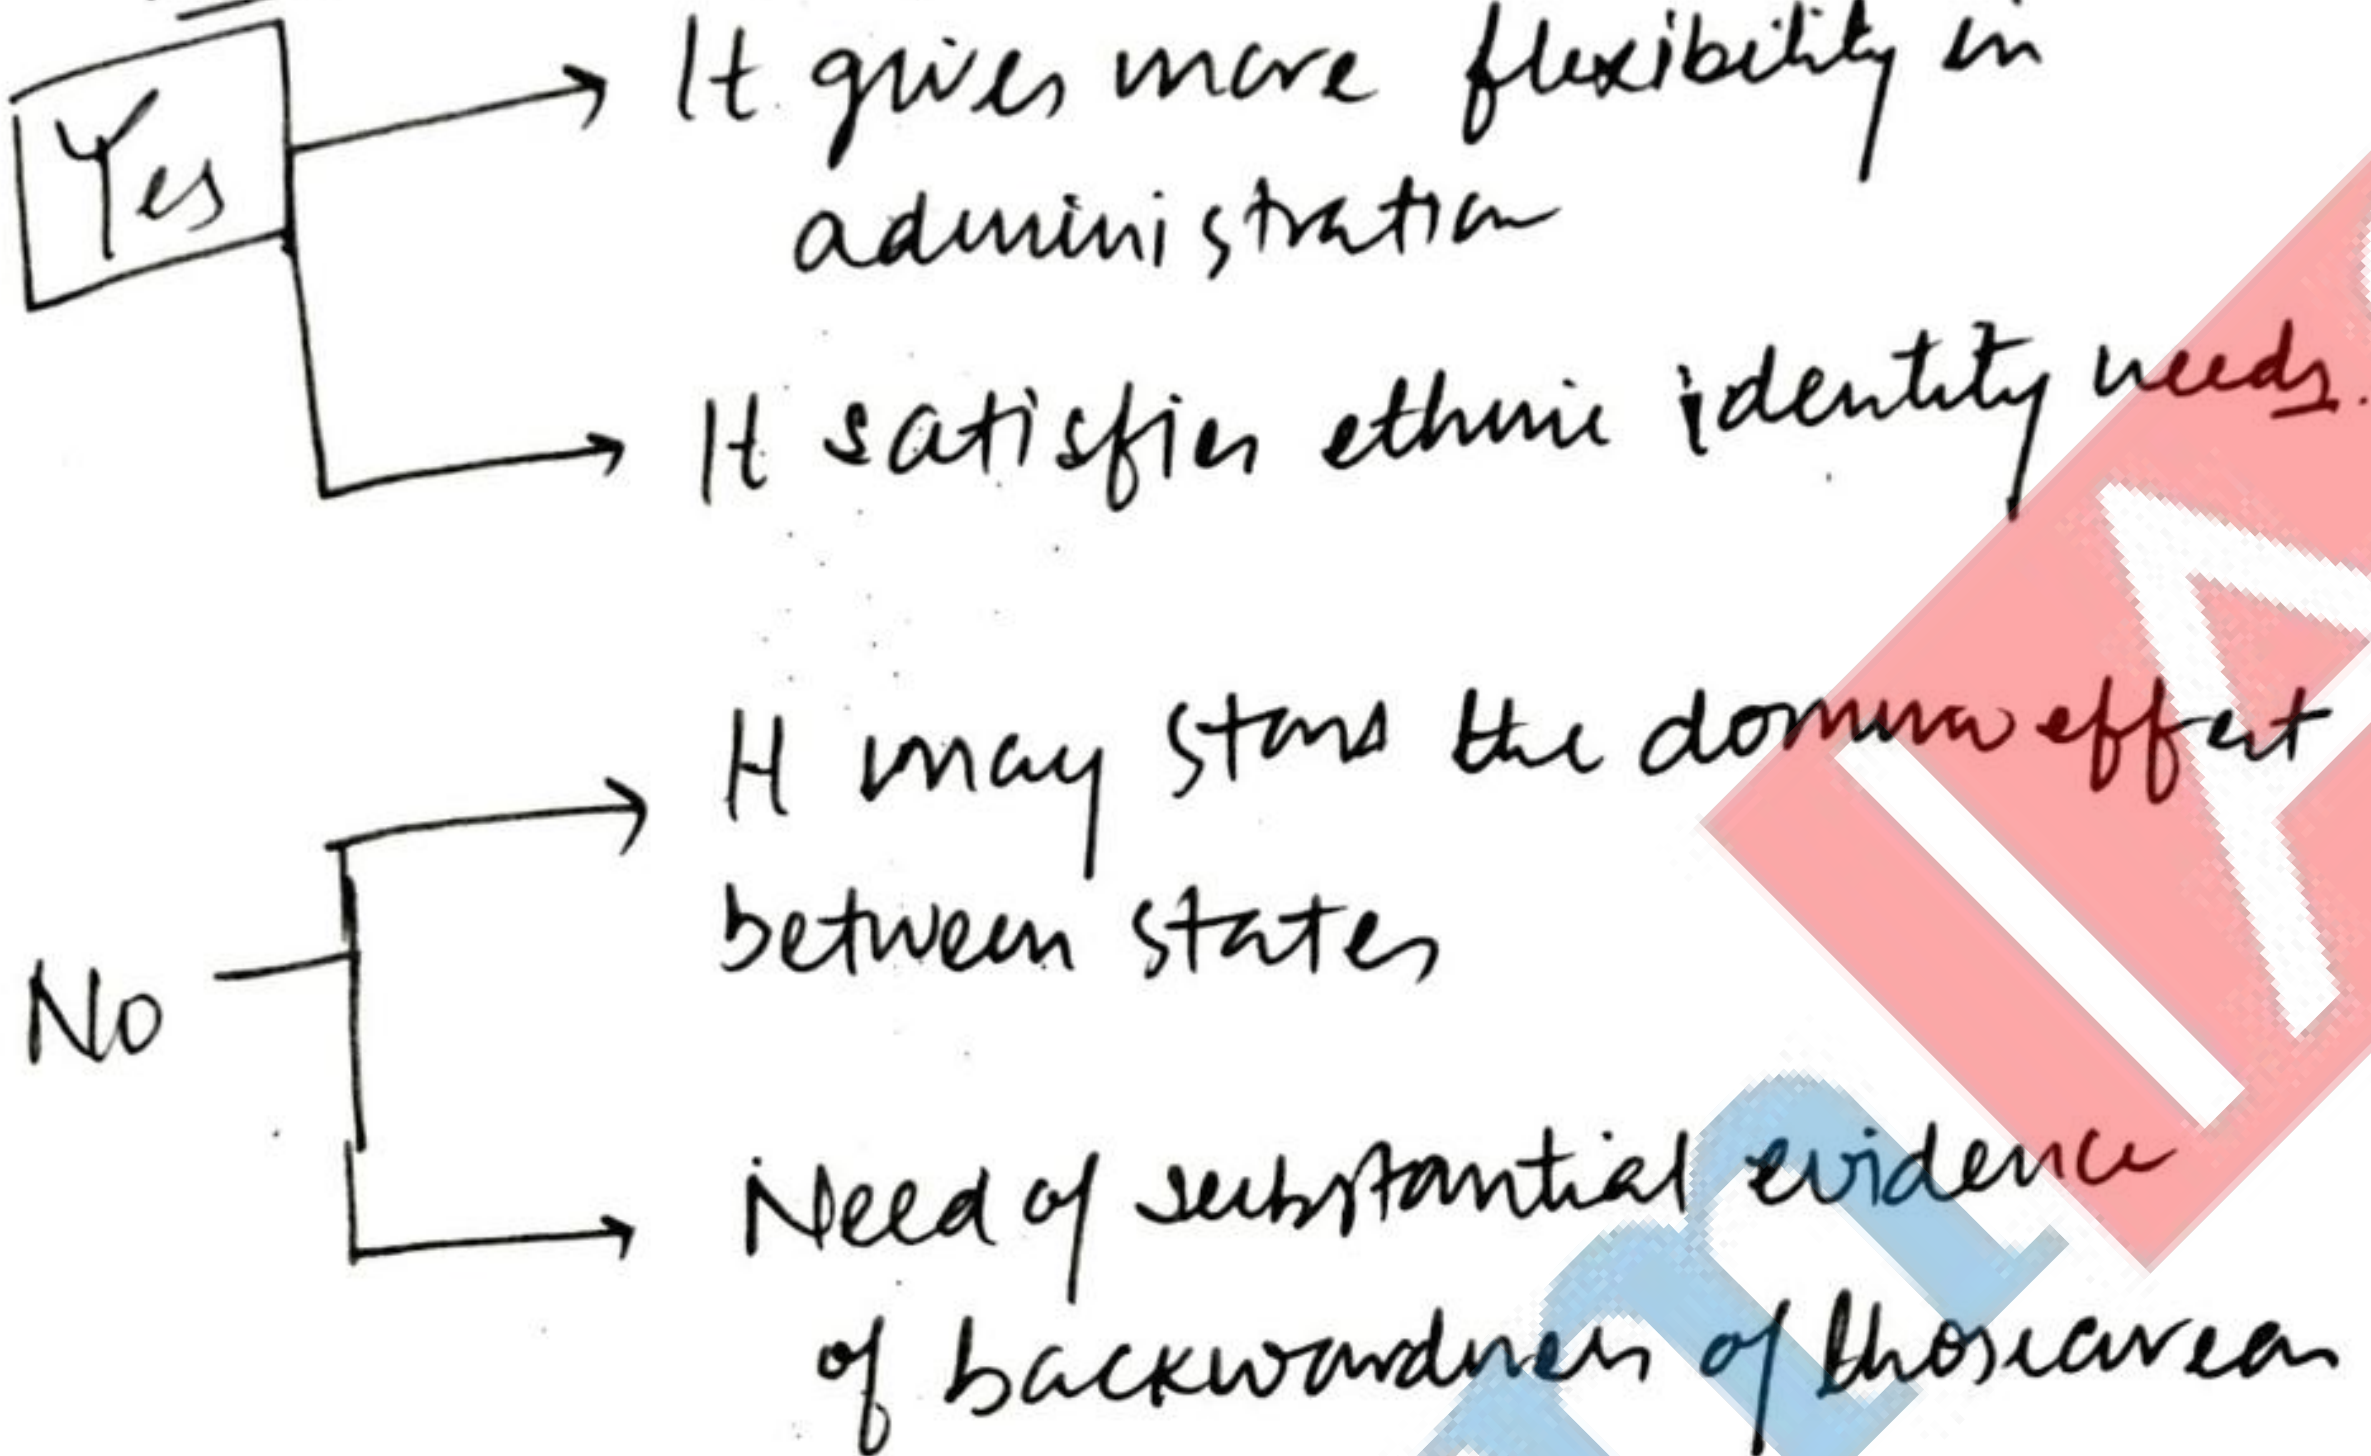 Yes
It gives more flexibility in
administration
It satisfies ethnic identity needs.
No
It may start the domino effect
between states
Need of substantial evidence
of backwardness of those areas
IA